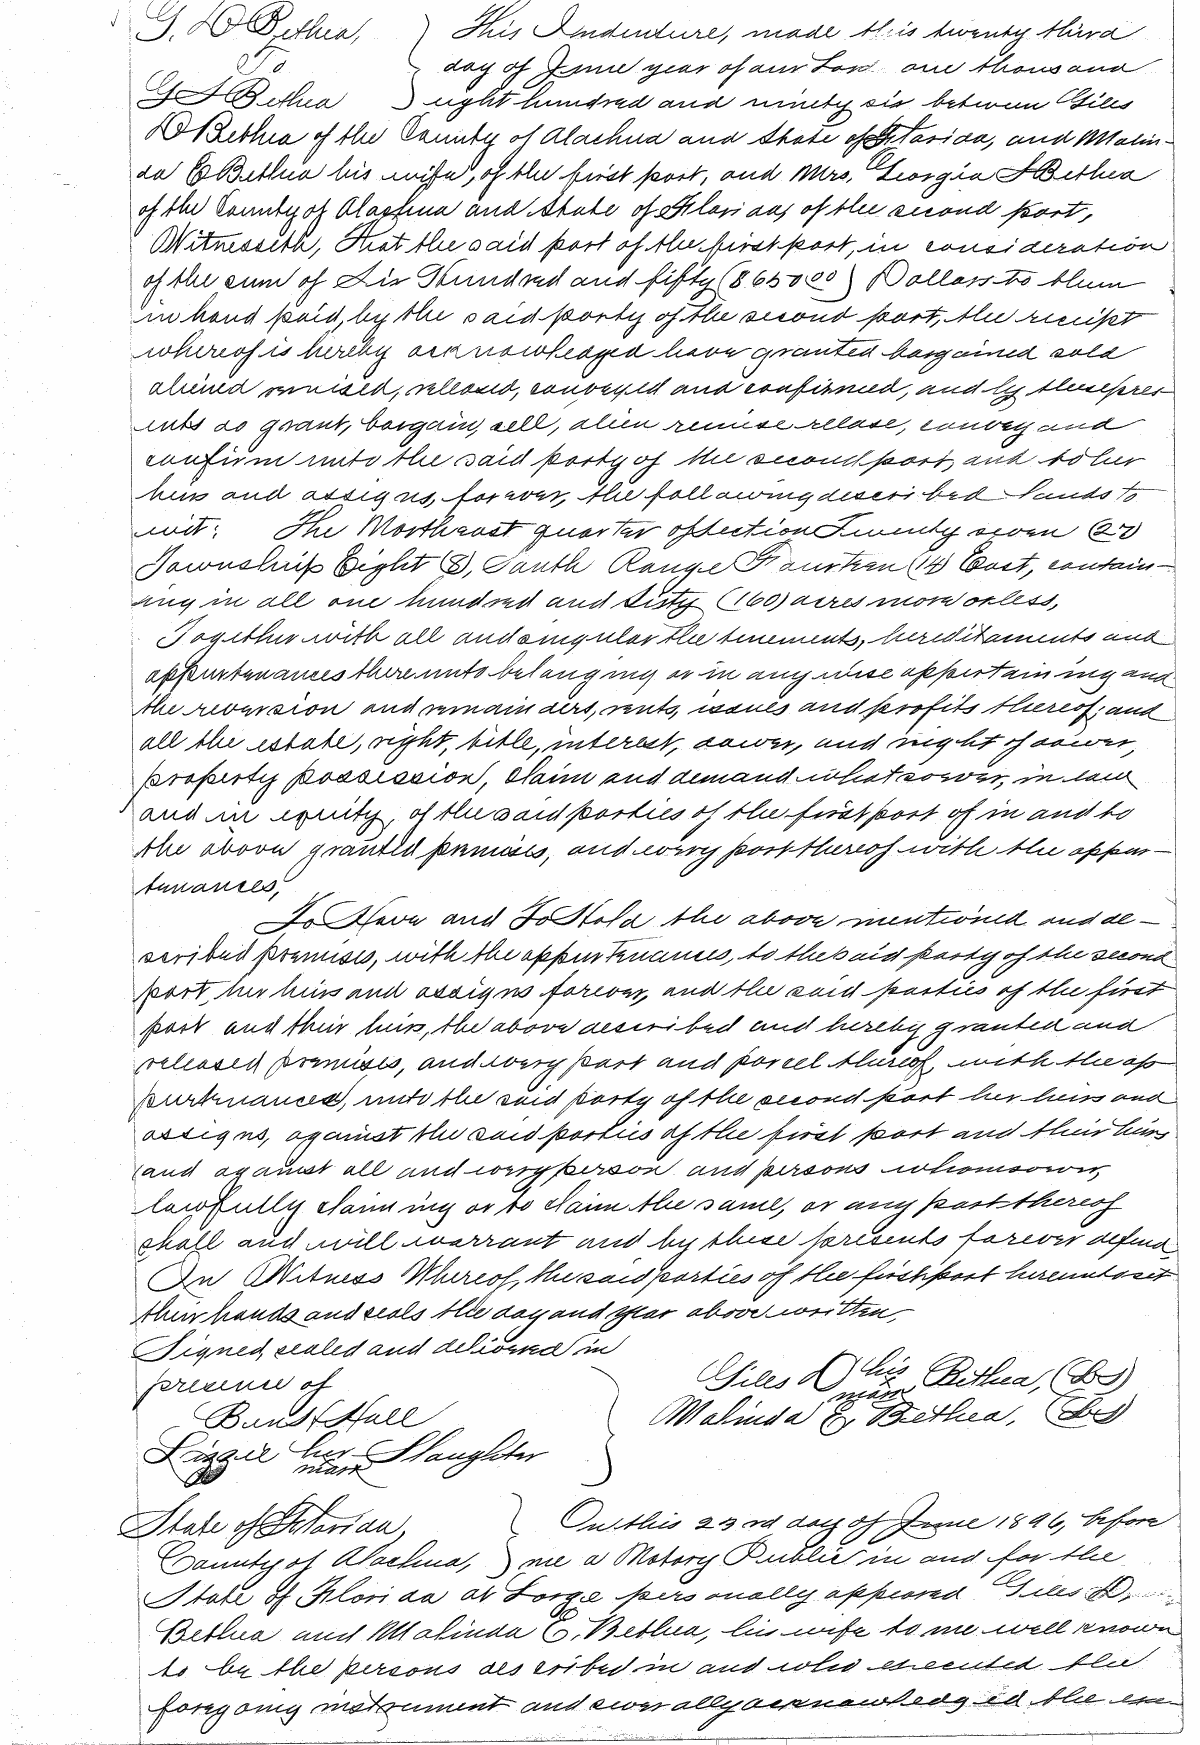 G. D Bethea, } This Indenture, made this twenty third
To day of June year of our Lord one thousand
G A Bethea } eight hundred and ninety six between Giles
D Bethea of the County of Alachua and State of Florida, and Malin-
da E Bethea his wife, of the first part, and Mrs. Georgia A Bethea
of the County of Alachua and State of Florida, of the second part,
Witnesseth, That the said part of the first part, in consideration
of the sum of Six Hundred and fifty ($650.00) Dollars to them
in hand paid, by the said party of the second part, the receipt
whereof is hereby acknowledged have granted bargained sold
aliened remised, released, conveyed and confirmed, and by these pres-
ents do grant, bargain, sell, alien remise relase, convey and
confirm unto the said party of the second part, and to her
heirs and assigns, forever, the following described lands to
wit: The Northeast quarter of Section Twenty seven (27)
Township Eight (8), South Range Fourteen (14) East, contain-
ing in all one hundred and sixty (160) acres more or less,
Together with all and singular the tenements, hereditaments and
appurtenances thereunto belonging or in any wise appertaining and
the reversion and remainders, rents, issues and profits thereof; and
all the estate, right, title, interest, dower, and right of dower,
property possession, claim and demand whatsoever, in law
and in equity, of the said parties of the first part of in and to
the above granted premises, and every part thereof with the appur-
tenances,
To Have and To Hold the above mentioned and de-
scribed premises, with the appurtenances, to the said party of the second
part, her heirs and assigns forever, and the said parties of the first
part and their heirs, the above described and hereby granted and
released premises, and every part and parcel thereof, with the ap
purtenances, unto the said party of the second part her heirs and
assigns, against the said parties of the first part and their heirs
and against all and every person and persons whomsoever,
lawfully claiming or to claim the same, or any part thereof
shall and will warrant and by these presents forever defend
In Witness Whereof, the said parties of the first part hereunto set
their hands and seals the day and year above written,
Signed, sealed and delivered in
presence of
Giles D his mark Bethea, (LS)
Malinda E, Bethea, (LS)
Hall
Lizzie her mark Slaughter
State of Florida, } On this 23rd day of June 1896, before
County of Alachua, } me a Notary Public in and for the
State of Florida at Large personally appeared Giles D.
Bethea and Malinda E. Bethea, his wife to me well known
to be the persons described in and who executed the
foregoing instrument and severally acknowledged the ex-